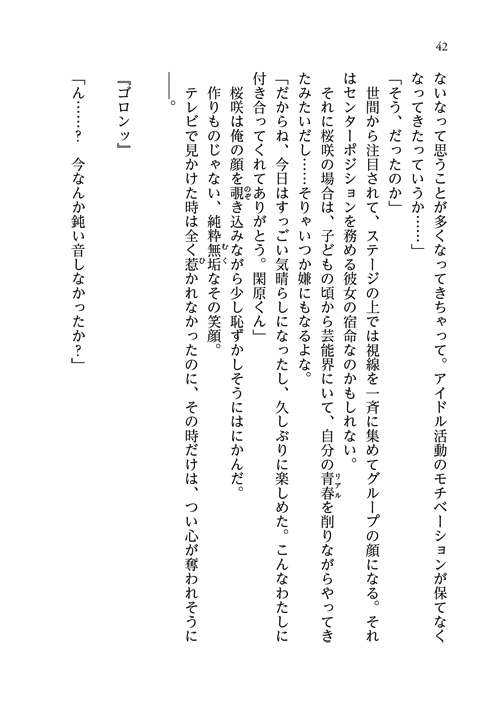 42
ないなって思うことが多くなってきちゃって。アイドル活動のモチベーションが保てなく
なってきたっていうか……」
「そう、だったのか」
世間から注目されて、ステージの上では視線を一斉に集めてグループの顔になる。それ
はセンターポジションを務める彼女の宿命なのかもしれない。
それに桜咲の場合は、子どもの頃から芸能界にいて、自分の青春を削りながらやってき
リアル
たみたいだし……そりゃいつか嫌にもなるよな。
「だからね、今日はすっごい気晴らしになったし、久しぶりに楽しめた。こんなわたしに
付き合ってくれてありがとう。閑原くん」
桜咲は俺の顔を覗き込みながら少し恥ずかしそうにはにかんだ。
のぞ
作りものじゃない、純粋無垢なその笑顔。
むく
テレビで見かけた時は全く惹かれなかったのに、その時だけは、つい心が奪われそうに
ひ
――。
『ゴロンッ』
「ん……？　今なんか鈍い音しなかったか？」